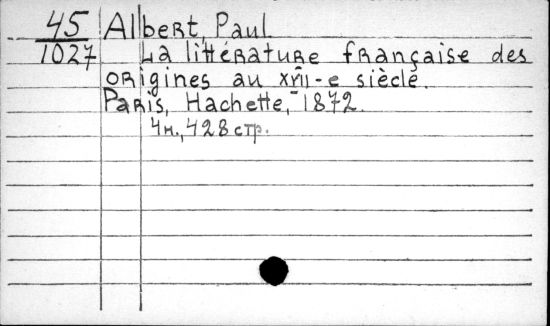 45 Albert, Paul
1027 La littérature française des
origines au XVII-e siècle.
Paris, Hachette, 1872.
4н., 428 стр.